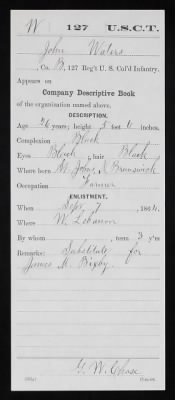 W 127 U.S.C.T.
John Waters
, Co. B, 127 Reg't U. S. Col'd Infantry.
Appears on
Company Descriptive Book
of the organization named above.
DESCRIPTION.
Age 26 years; height 5 feet 6 inches.
Complexion Black
Eyes Black, hair Black
Where born St. John, N. Brunswick
Occupation Farmer
ENLISTMENT.
When Sept. 7, 1864.
Where W. Lebanon
By whom , term 3 y'rs.
Remarks: Substitute for
James M. Bixby.
G. W. Chase
Copyist.